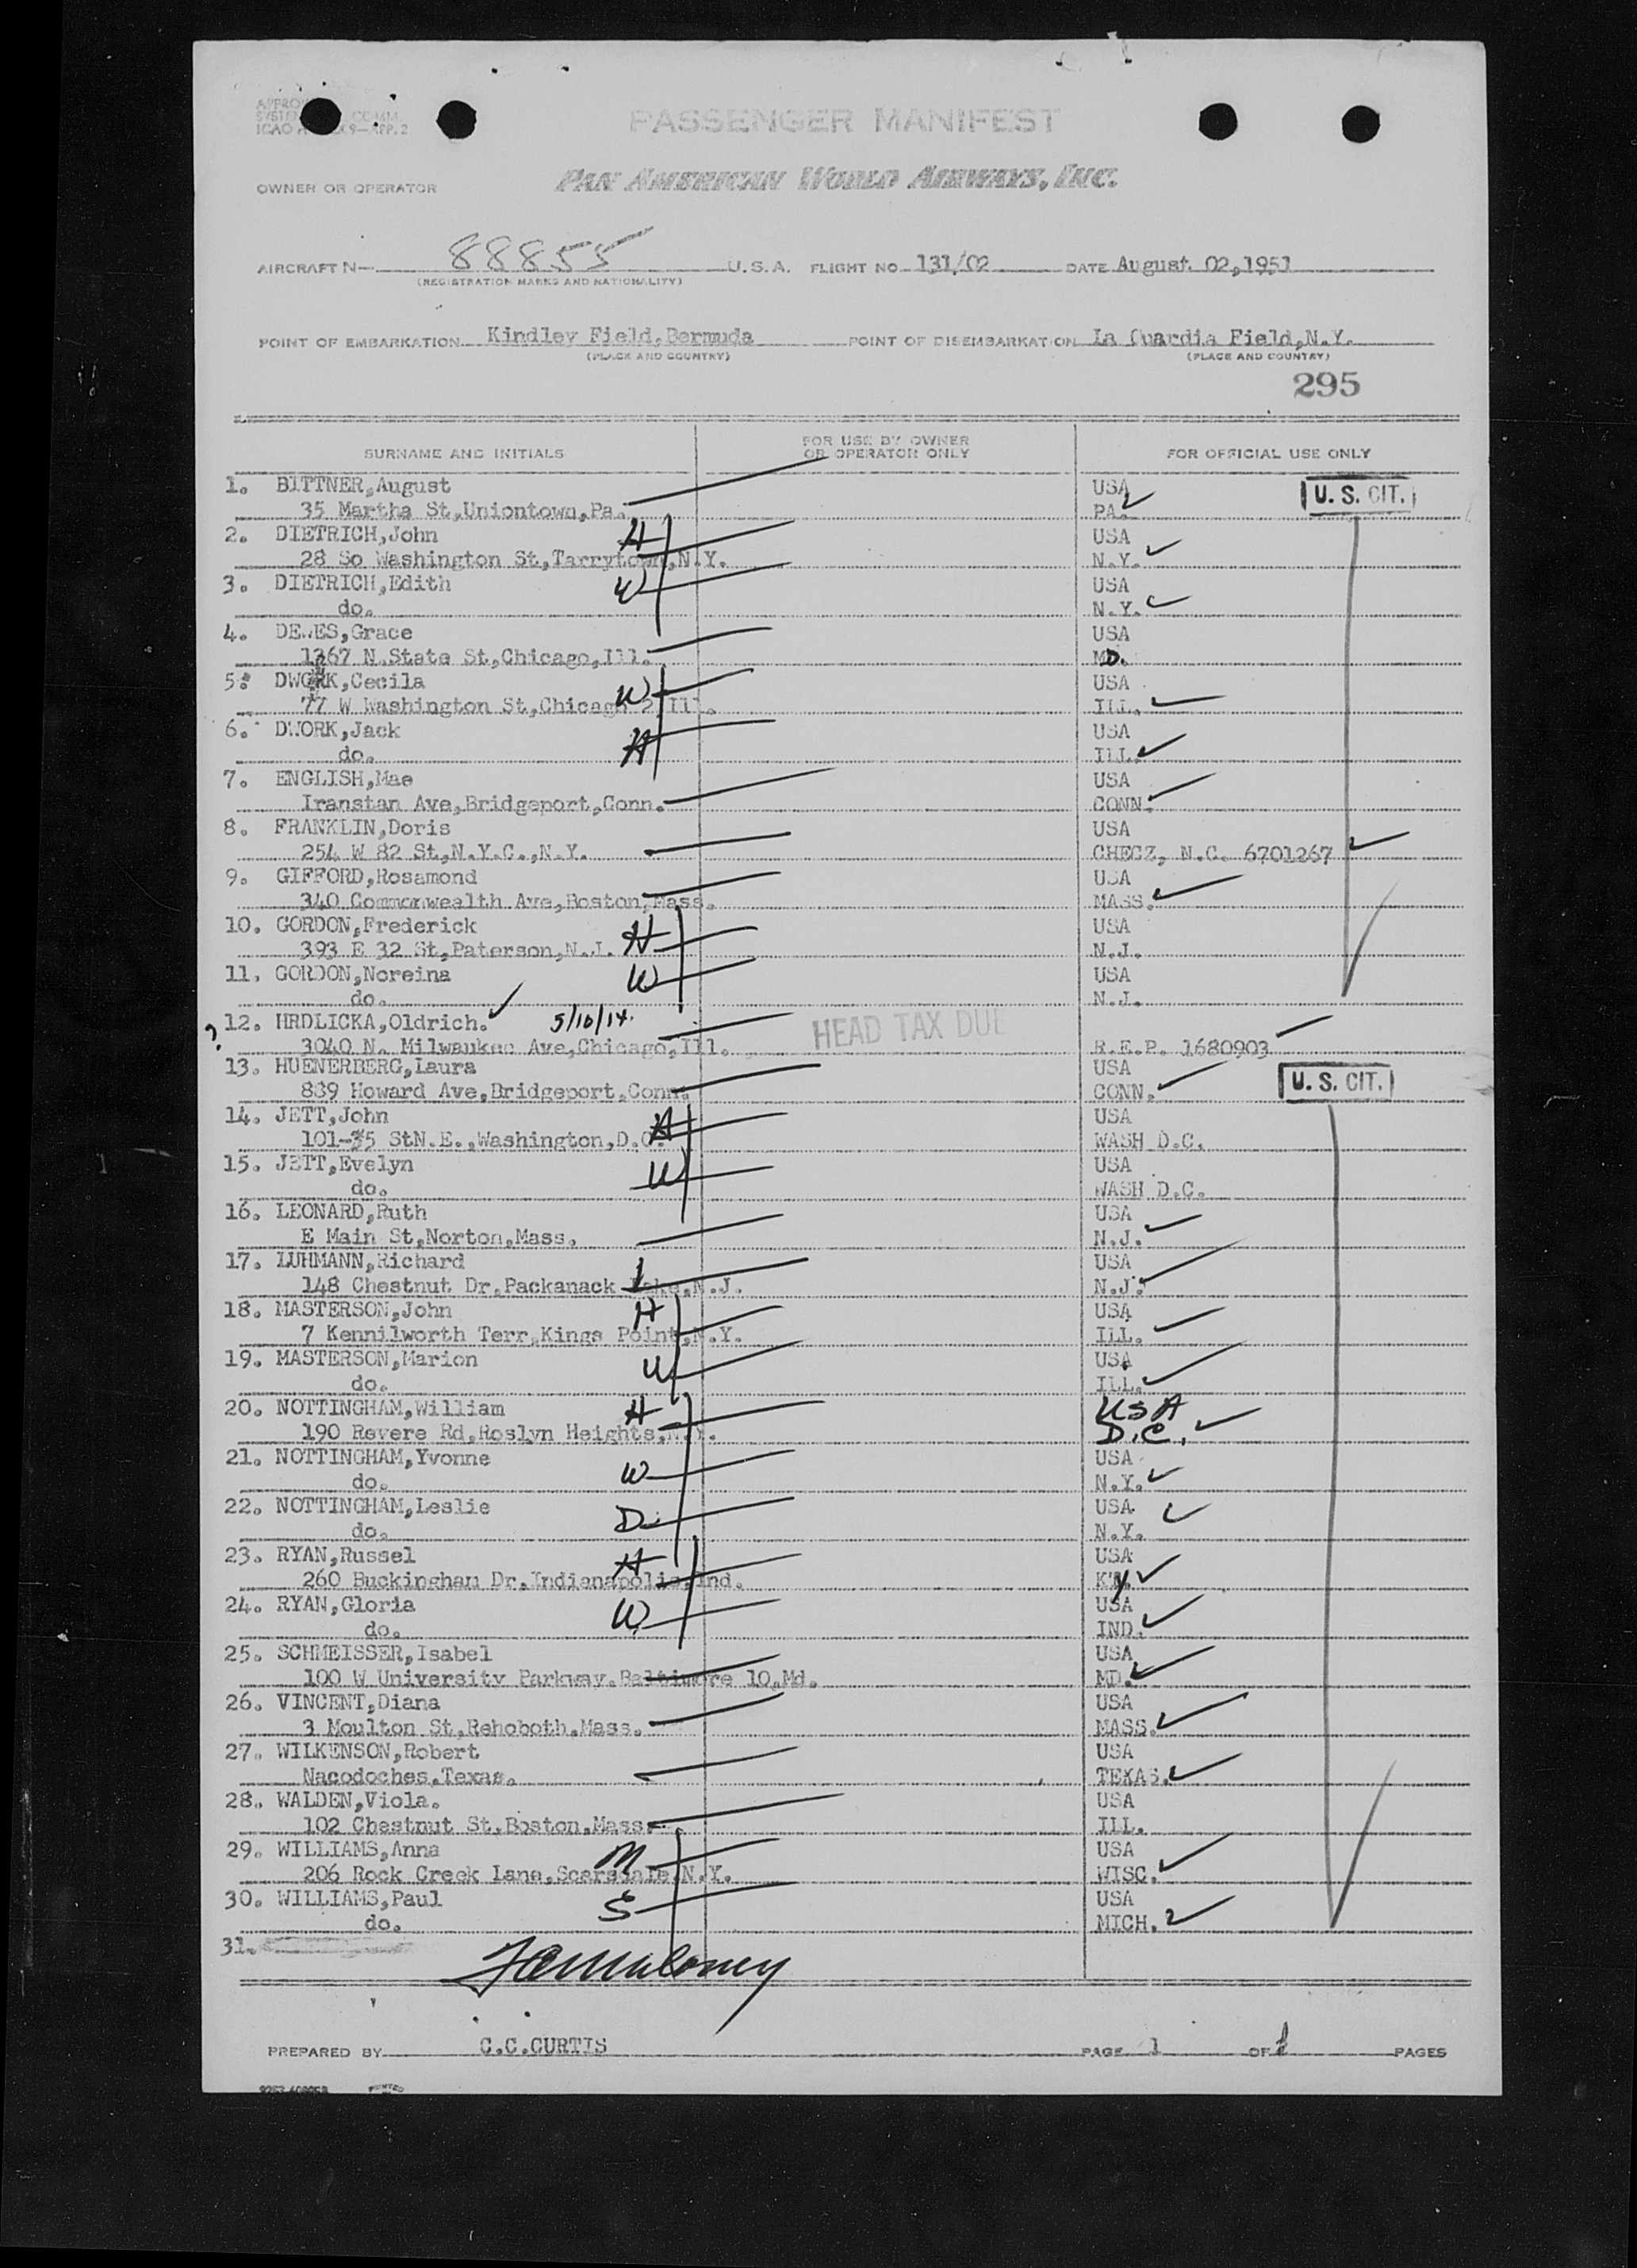 PASSENGER MANIFEST
ICAO 9—APP. 2
OWNER OR OPERATOR PAN AMERICAN WORLD AIRWAYS, INC.
AIRCRAFT N— 88855 U.S.A. FLIGHT NO 131/02 DATE August 02,1951
(REGISTRATION MARKS AND NATIONALITY)
POINT OF EMBARKATION Kindley Field,Bermuda POINT OF DISEMBARKATION La Guardia Field,N.Y.
(PLACE AND COUNTRY) (PLACE AND COUNTRY)
295
SURNAME AND INITIALS FOR USE BY OWNER OR OPERATOR ONLY FOR OFFICIAL USE ONLY
1. BITTNER,August USA U. S. CIT.
35 Martha St,Uniontown,Pa. PA.
2. DIETRICH,John H USA
28 So Washington St,Tarrytown,N.Y. N.Y.
3. DIETRICH,Edith W USA
do. N.Y.
4. DEWES,Grace USA
1367 N.State St,Chicago,Ill. MD.
5. DWORK,Cecila W USA
77 W Washington St,Chicago 2,Ill. ILL.
6. DWORK,Jack H USA
do. ILL.
7. ENGLISH,Mae USA
Iranstan Ave,Bridgeport,Conn. CONN.
8. FRANKLIN,Doris USA
254 W 82 St,N.Y.C.,N.Y. CHECZ, N.C. 6701267
9. GIFFORD,Rosamond USA
340 Commonwealth Ave,Boston,Mass. MASS.
10. GORDON,Frederick H USA
393 E 32 St,Paterson,N.J. N.J.
11. GORDON,Noreina W USA
do. N.J.
? 12. HRDLICKA,Oldrich. 5/10/14. HEAD TAX DUE
3040 N. Milwaukee Ave,Chicago,Ill. R.E.P. 1680903
13. HUENERBERG,Laura USA U. S. CIT.
889 Howard Ave,Bridgeport,Conn. CONN.
14. JETT,John H USA
101-35 StN.E.,Washington,D.C. WASH D.C.
15. JETT,Evelyn W USA
do. WASH D.C.
16. LEONARD,Ruth USA
E Main St,Norton,Mass. N.J.
17. LUHMANN,Richard USA
148 Chestnut Dr,Packanack Lake,N.J. N.J.
18. MASTERSON,John H USA
7 Kennilworth Terr,Kings Point,N.Y. ILL.
19. MASTERSON,Marion W USA
do. ILL.
20. NOTTINGHAM,William H USA
190 Revere Rd,Roslyn Heights,N.Y. D.C.
21. NOTTINGHAM,Yvonne W USA
do. N.Y.
22. NOTTINGHAM,Leslie D USA
do. N.Y.
23. RYAN,Russel H USA
260 Buckingham Dr,Indianapolis,Ind. KY.
24. RYAN,Gloria W USA
do. IND.
25. SCHMEISSER,Isabel USA
100 W University Parkway,Baltimore 10,Md. MD.
26. VINCENT,Diana USA
3 Moulton St,Rehoboth,Mass. MASS.
27. WILKENSON,Robert USA
Nacodoches,Texas. TEXAS.
28. WALDEN,Viola. USA
102 Chestnut St,Boston,Mass. ILL.
29. WILLIAMS,Anna M USA
206 Rock Creek Lane,Scarsdale,N.Y. WISC.
30. WILLIAMS,Paul S USA
do. MICH.
31.
PREPARED BY C.C.CURTIS PAGE 1 OF 1 PAGES